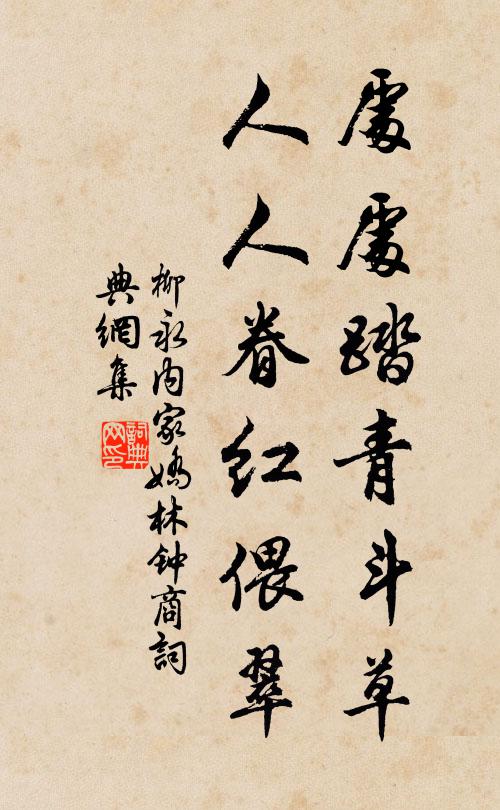 處處踏青斗草
人人眷红偎翠
柳永内家嬌林钟商詞
典網集
詞典
网印